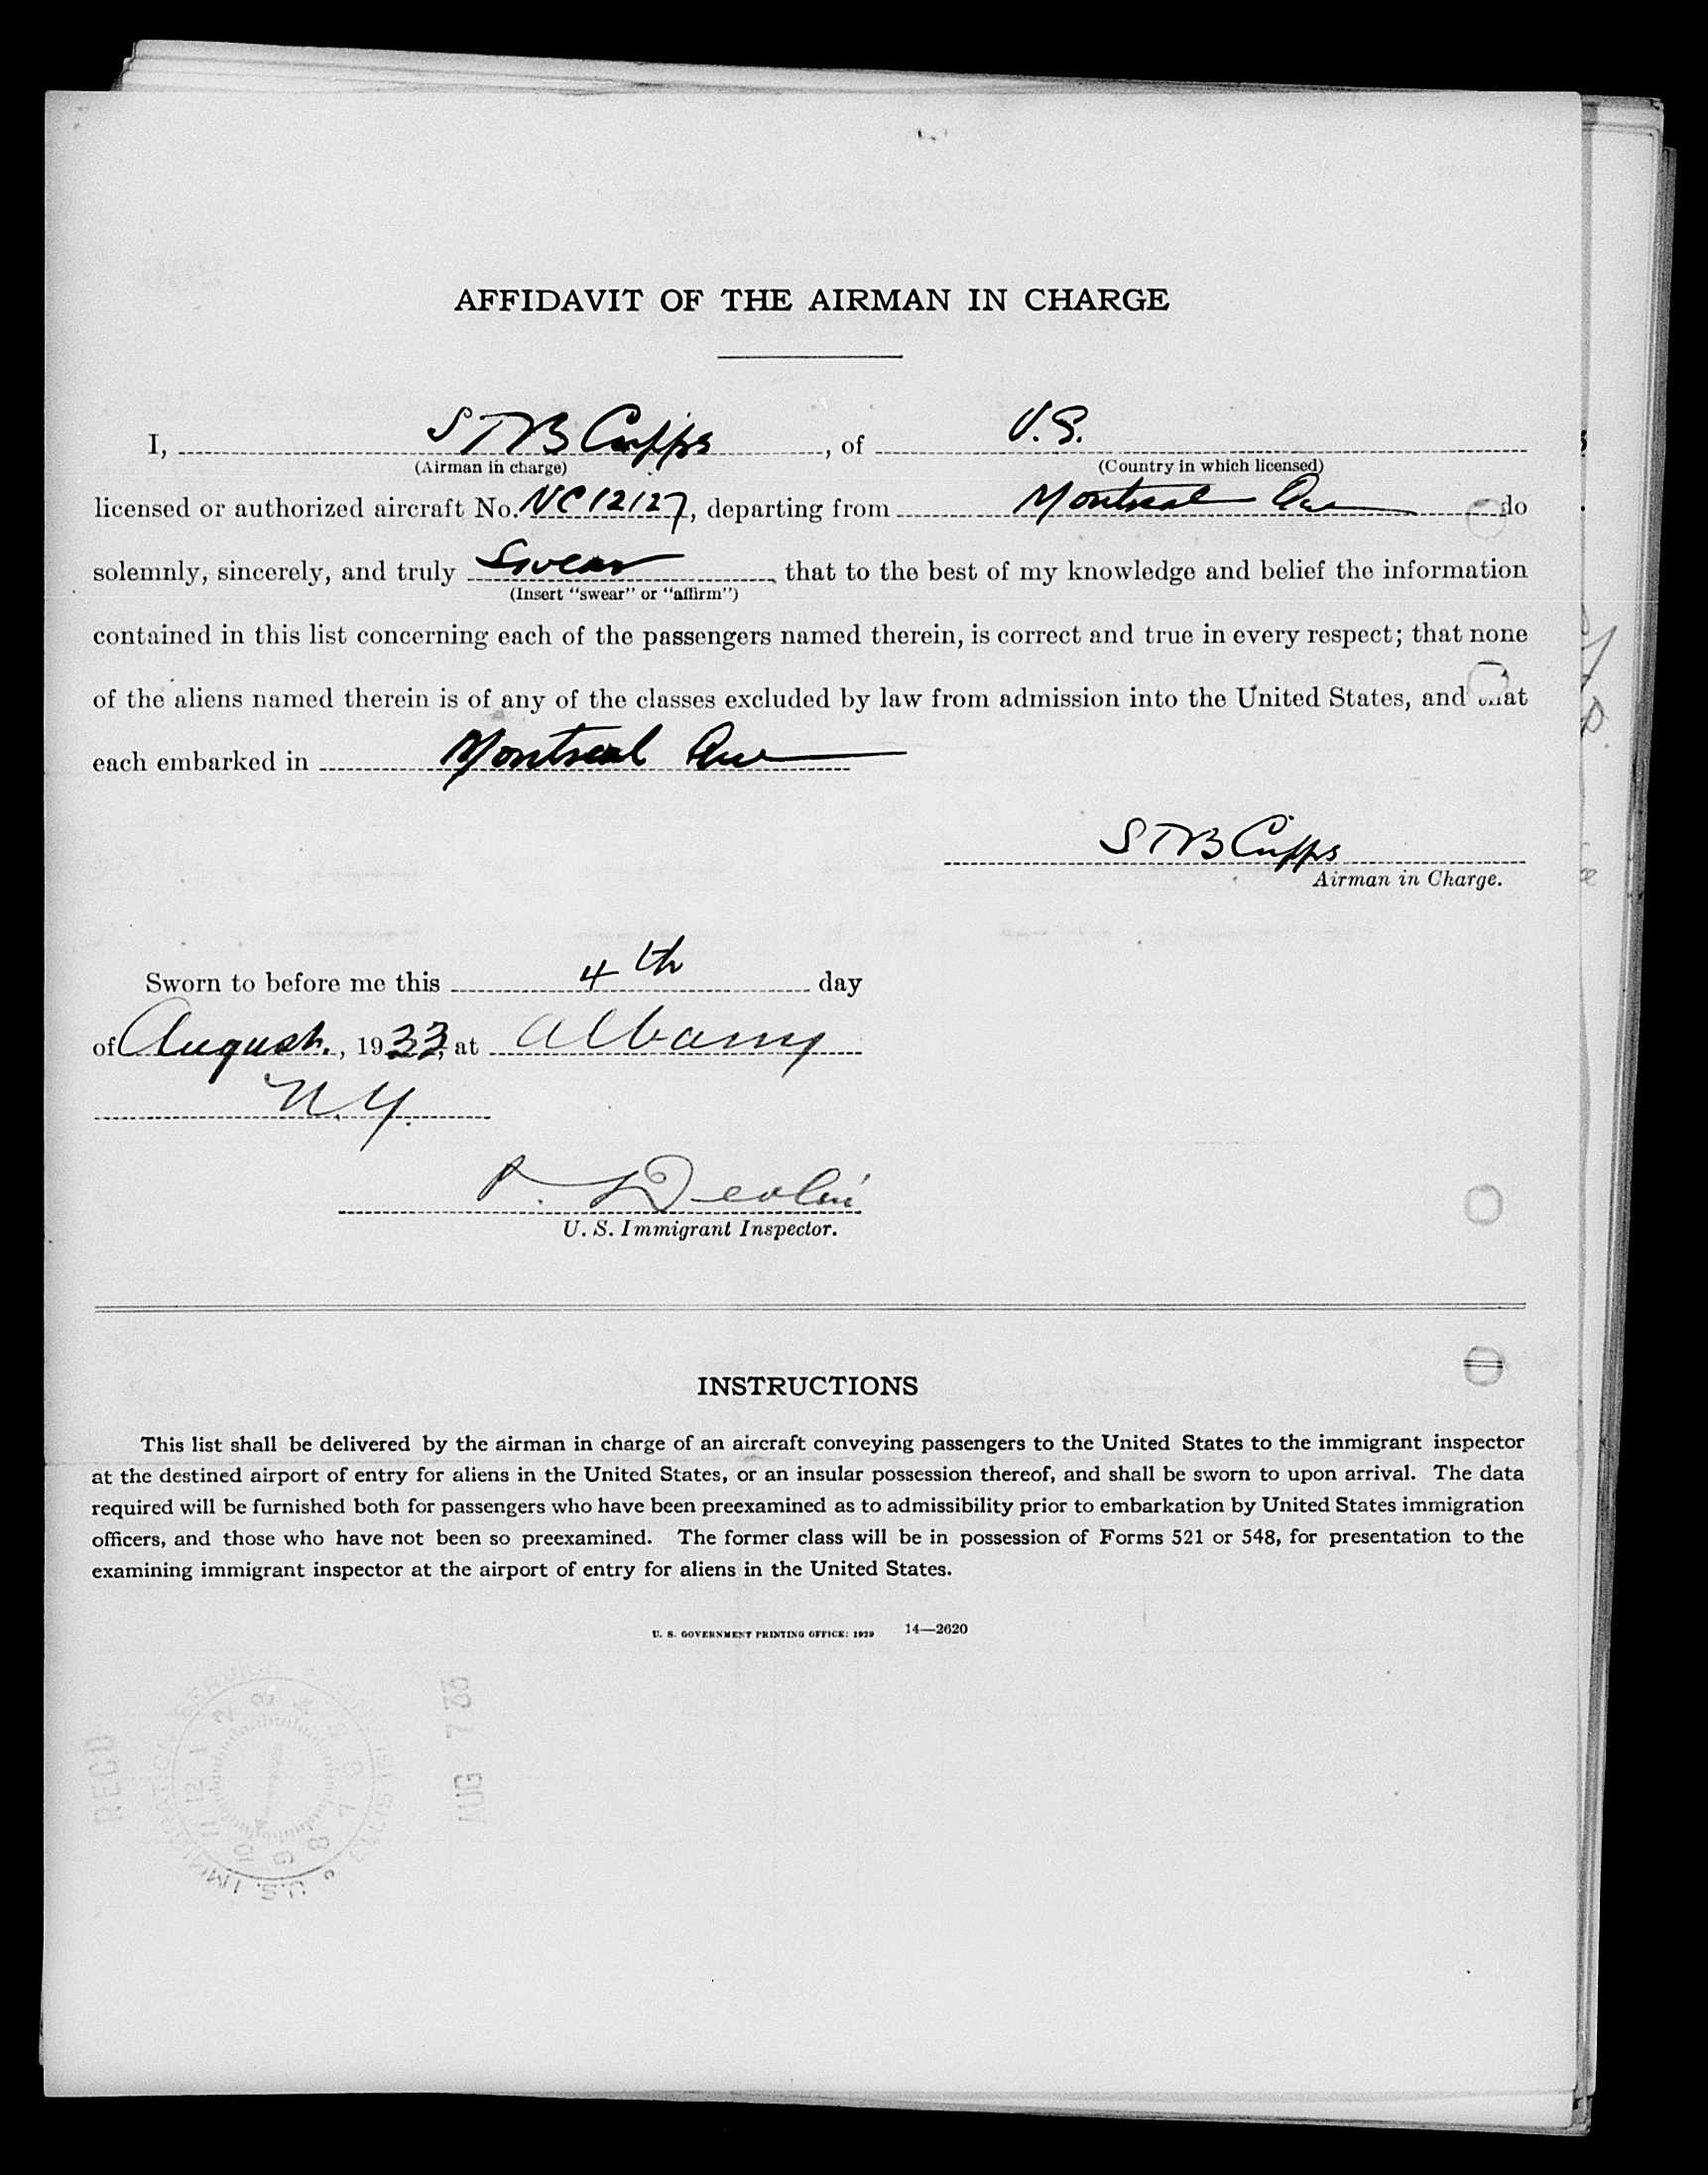 AFFIDAVIT OF THE AIRMAN IN CHARGE
I, S T B Cripps, of U.S.
(Airman in charge) (Country in which licensed)
licensed or authorized aircraft No. NC12127, departing from Montreal Que do
solemnly, sincerely, and truly Swear, that to the best of my knowledge and belief the information
(Insert "swear" or "affirm")
contained in this list concerning each of the passengers named therein, is correct and true in every respect; that none
of the aliens named therein is of any of the classes excluded by law from admission into the United States, and that
each embarked in Montreal Que
S T B Cripps
Airman in Charge.
Sworn to before me this 4th day
of August., 1933, at Albany
N.Y.
P. Devlin
U. S. Immigrant Inspector.
INSTRUCTIONS
This list shall be delivered by the airman in charge of an aircraft conveying passengers to the United States to the immigrant inspector
at the destined airport of entry for aliens in the United States, or an insular possession thereof, and shall be sworn to upon arrival. The data
required will be furnished both for passengers who have been preexamined as to admissibility prior to embarkation by United States immigration
officers, and those who have not been so preexamined. The former class will be in possession of Forms 521 or 548, for presentation to the
examining immigrant inspector at the airport of entry for aliens in the United States.
U. S. GOVERNMENT PRINTING OFFICE: 1929 14—2620
RECD
1 2 3 4 5 6 7 8 9 10 11 12
U.S. IMMIGRATION SERVICE ELLIS ISL
AUG 7 33